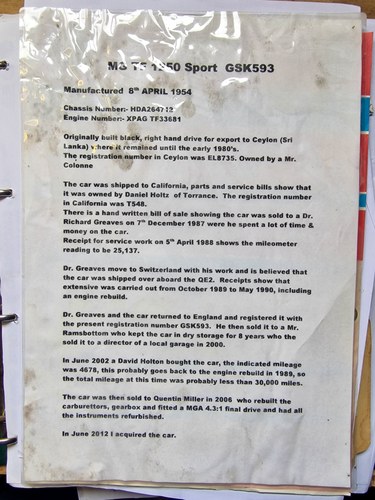 MG TF 1250 Sport GSK593
Manufactured 8th APRIL 1954
Chassis Number:-
Engine Number:- XPAG TF33681
Originally built black, right hand drive for export to Ceylon (Sri
Lanka) where it remained until the early 1980's.
The registration number in Ceylon was EL8735. Owned by a Mr.
Colonne
The car was shipped to California, parts and service bills show that
it was owned by Daniel Holtz of Torrance. The registration number
in California was T548.
There is a hand written bill of sale showing the car was sold to a Dr.
Richard Greaves on 7th December 1987 were he spent a lot of time &
money on the car.
Receipt for service work on 5th April 1988 shows the mileometer
reading to be 25,137.
Dr. Greaves move to Switzerland with his work and is believed that
the car was shipped over aboard the QE2. Receipts show that
extensive was carried out from October 1989 to May 1990, including
an engine rebuild.
Dr. Greaves and the car returned to England and registered it with
the present registration number GSK593. He then sold it to a Mr.
Ramsbottom who kept the car in dry storage for 8 years who the
sold it to a director of a local garage in 2000.
In June 2002 a David Holton bought the car, the indicated mileage
was 4678, this probably goes back to the engine rebuild in 1989, so
the total mileage at this time was probably less than 30,000 miles.
The car was then sold to Quentin Miller in 2006 who rebuilt the
carburettors, gearbox and fitted a MGA 4.3:1 final drive and had all
the instruments refurbished.
In June 2012 I acquired the car.